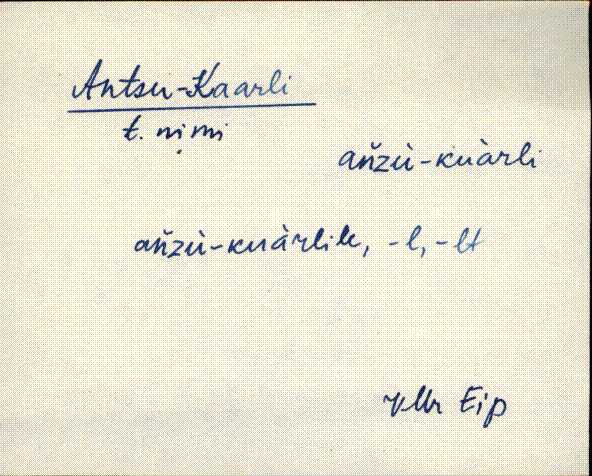 Antsu-Kaarli
t. nimi
ańzù-kuàrli
ańzù-kuàrlile, -l, -lt
VMr Eip